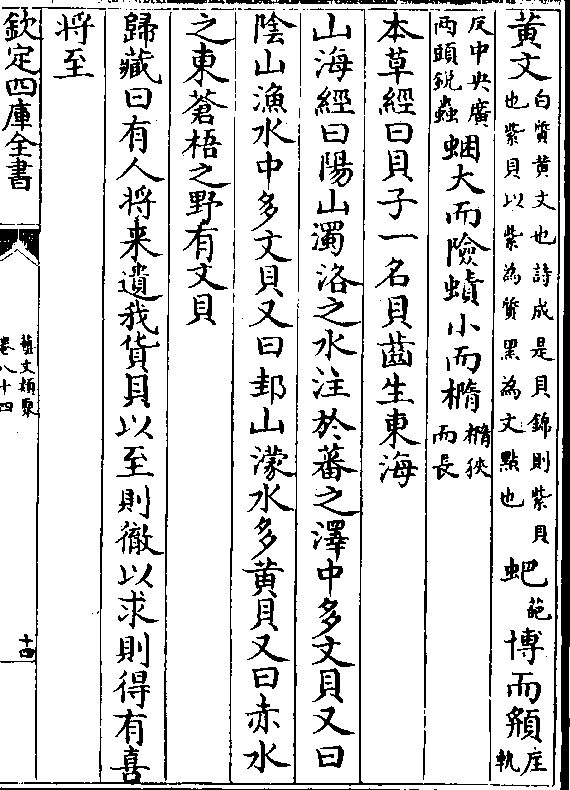 黄文白質黄文也詩成是貝錦則紫貝也紫貝以紫為質黑為文點也蚆葩博而頯匡軌
反中央廣兩頭銳蟲蜠大而險蟦小而橢橢狹而長
本草經曰貝子一名貝齒生東海
山海經曰陽山濁洛之水注於蕃之澤中多文貝又曰
陰山漁水中多文貝又曰邽山濛水多黄貝又曰赤水
之東蒼梧之野有文貝
歸藏曰有人將来遺我貨貝以至則徹以求則得有喜
將至
欽定四庫全書
藝文類聚
卷八十四
十四